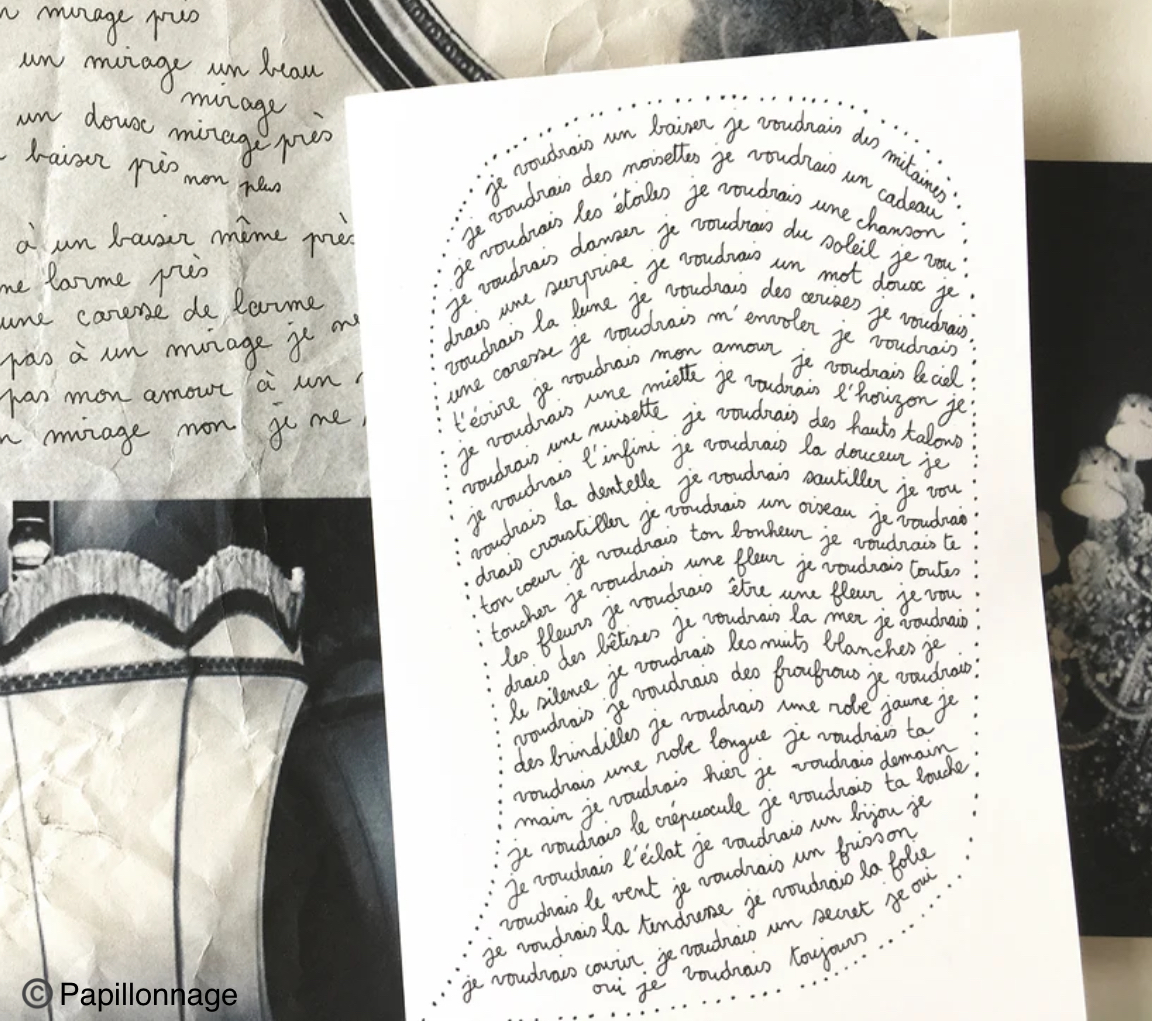 mirage près
un mirage un beau
mirage
un doux mirage près
baiser près
non plus
à un baiser même près
larme près
une caresse de larme
pas à un mirage je ne
pas mon amour à un
mirage non je ne
je voudrais un baiser je voudrais des mitaines
je voudrais des noisettes je voudrais un cadeau
je voudrais les étoiles je voudrais une chanson
je voudrais danser je voudrais du soleil je vou
drais une surprise je voudrais un mot doux je
voudrais la lune je voudrais des cerises je voudrais
une caresse je voudrais m'envoler je voudrais
t'écrire je voudrais mon amour je voudrais le ciel
je voudrais une miette je voudrais l'horizon je
voudrais une nuisette je voudrais des hauts talons
je voudrais l'infini je voudrais la douceur je
voudrais la dentelle je voudrais sautiller je vou
drais croustiller je voudrais un oiseau je voudrais
ton cœur je voudrais ton bonheur je voudrais te
toucher je voudrais une fleur je voudrais toutes
les fleurs je voudrais être une fleur je vou
drais des bêtises je voudrais la mer je voudrais
le silence je voudrais les nuits blanches je
voudrais je voudrais des froufrous je voudrais
des brindilles je voudrais une robe jaune je
voudrais une robe longue je voudrais ta
main je voudrais hier je voudrais demain
je voudrais le crépuscule je voudrais ta bouche
je voudrais l'éclat je voudrais un bijou je
voudrais le vent je voudrais un frisson
je voudrais la tendresse je voudrais la folie
je voudrais courir je voudrais un secret je oui
oui je voudrais toujours
© Papillonnage